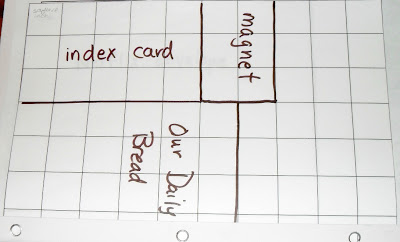 index card
magnet
Our Daily
Bread